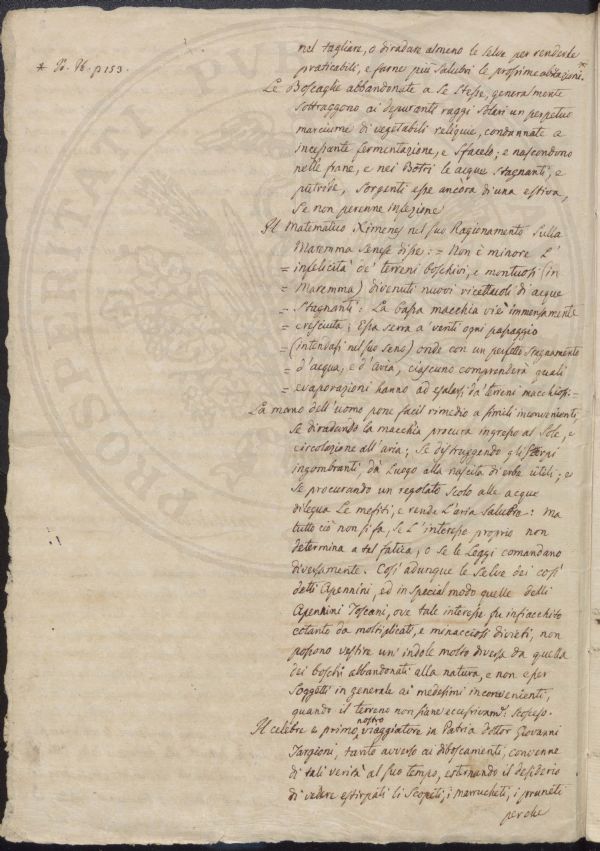 * Pt. Pt. p. 153.
nel tagliare, o diradare almeno le selve per renderle
praticabili, e farne più salubri le prossime abitazioni.*
Le Boscaglie abbandonate a se stesse, generalmente
sottraggono ai depuranti raggi solari un perpetuo
marciume di vegetabili reliquie, condannate a
incessante fermentazione, e sfacelo; e nascondono
nelle frane, e nei Botri le acque stagnanti, e
putride, sorgenti esse ancora di una estiva,
se non perenne infezione
Il Matematico Ximenes nel suo Ragionamento sulla
Maremma Senese disse: = Non è minore l'
= infelicità de' terreni boschivi, e montuosi (in
= Maremma) divenuti nuovi ricettacoli di acque
= stagnanti: La bassa macchia vi è immensamente
= cresciuta; Essa serra a' venti ogni passaggio
= (intendasi nel suo seno) onde con un perfetto stagnamento
= d'acqua, e d'aria, ciascuno comprenderà quali
= evaporazioni hanno ad esalarsi da' terreni macchiosi =
La mano dell'uomo pone facil rimedio a simili inconvenienti,
se diradando la macchia procura ingresso al Sole, e
circolazione all'aria; se distruggendo gli sterpi
ingombranti dà luogo alla nascita di erbe utili; e
se procurando un regolato scolo alle acque
dilegua le mefiti, e rende l'aria salubre: Ma
tutto ciò non si fa, se l'interesse proprio non
determina a tal fatica, o se le Leggi comandano
diversamente. Così adunque le Selve dei così
detti Apennini, ed in special modo quelle delli
Apennini Toscani, ove tale interesse fu infiacchito
cotanto da moltiplicati, e minacciosi divieti, non
possono vestire un' indole molto diversa da quella
dei boschi abbandonati alla natura, e non esser
soggetti in generale ai medesimi inconvenienti,
quando il terreno non siane eccessivam.e scosceso.
Il celebre e primo nostro viaggiatore in Patria dottor Giovanni
Targioni, tanto avverso ai diboscamenti, convenne
di tali verità al suo tempo, esternando il desiderio
di vedere estirpati li scopeti, i marrucheti, i pruneti
perche